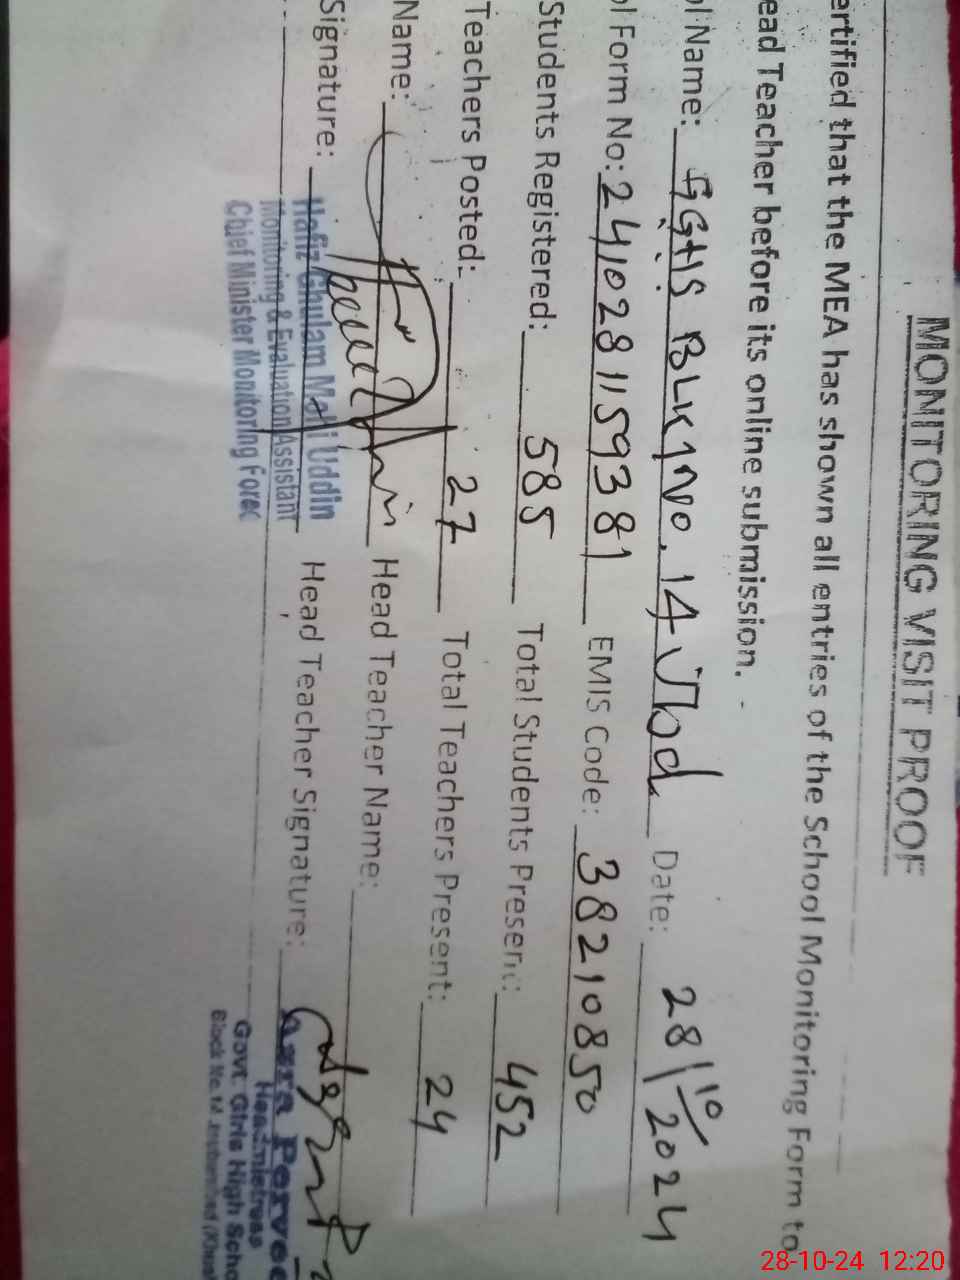 MONITORING VISIT PROOF
ertified that the MEA has shown all entries of the School Monitoring Form to
ead Teacher before its online submission.
l Name: GGHS BLK NO. 14 Jbd Date: 28/10/2024
l Form No: 2410281159381 EMIS Code: 38210850
Students Registered: 585 Total Students Present: 452
Teachers Posted: 27 Total Teachers Present: 24
Name: Head Teacher Name:
Signature: Head Teacher Signature:
Hafiz Ghulam Mohi Uddin
Monitoring & Evaluation Assistant
Chief Minister Monitoring Forec
Pervee
Headmistress
Govt. Girls High Scho
Block No. 14
28-10-24 12:20